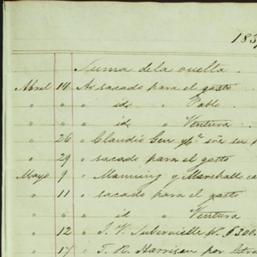 183
Suma de la vuelta
Abril 14 " sacado para el gasto
" " " id Pablo
" " " id Ventura
" 26 " Claudio
" 29 " sacado para el gasto
Mayo 9 " Manning y Marshall
" 11 " sacado para el gasto
" " " id Ventura
" 12 " J. V.
" 17 " F. R. Harrison por